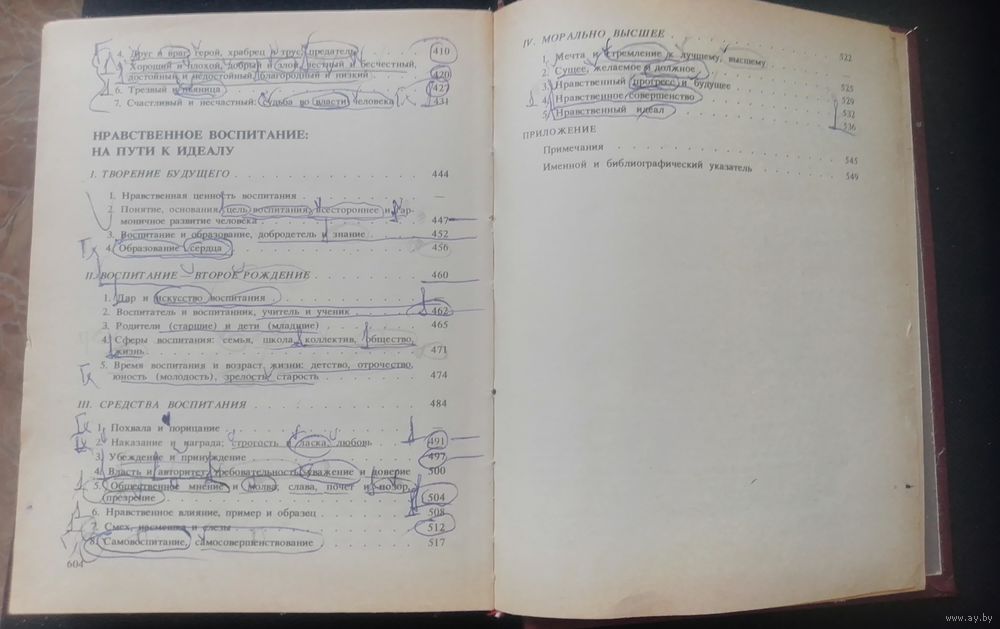 4. Друг и враг, герой, храбрец и трус, предатель . . 410
Хороший и плохой, добрый и злой, честный и бесчестный,
достойный и недостойный, благородный и низкий . . 420
6. Трезвый и пьяница . . . 427
7. Счастливый и несчастный; судьба во власти человека 431
НРАВСТВЕННОЕ ВОСПИТАНИЕ:
НА ПУТИ К ИДЕАЛУ
I. ТВОРЕНИЕ БУДУЩЕГО . . . 444
1. Нравственная ценность воспитания . . . —
2. Понятие, основания, цель воспитания, всестороннее и гар-
моничное развитие человека . . . 447
3. Воспитание и образование, добродетель и знание . . . 452
4. Образование сердца . . . 456
II. ВОСПИТАНИЕ — ВТОРОЕ РОЖДЕНИЕ . . . 460
1. Дар и искусство воспитания . . .
2. Воспитатель и воспитанник, учитель и ученик . . . 462
3. Родители (старшие) и дети (младшие) . . . 465
4. Сферы воспитания: семья, школа, коллектив, общество,
жизнь . . . 471
5. Время воспитания и возраст жизни: детство, отрочество,
юность (молодость), зрелость, старость . . . 474
III. СРЕДСТВА ВОСПИТАНИЯ . . . 484
1. Похвала и порицание . . . —
2. Наказание и награда; строгость и ласка, любовь . . . 491
3. Убеждение и принуждение . . . 497
4. Власть и авторитет, требовательность, уважение и доверие 500
5. Общественное мнение и молва; слава, почет и позор,
презрение . . . 504
6. Нравственное влияние, пример и образец . . . 508
7. Смех, насмешка и слезы . . . 512
8. Самовоспитание, самосовершенствование . . . 517
604
IV. МОРАЛЬНО ВЫСШЕЕ . . . 522
1. Мечта и стремление к лучшему, высшему . . . —
2. Сущее, желаемое и должное . . . 525
3. Нравственный прогресс и будущее . . . 529
4. Нравственное совершенство . . . 532
5. Нравственный идеал . . . 536
ПРИЛОЖЕНИЕ
Примечания . . . 545
Именной и библиографический указатель . . . 549
www.ay.by